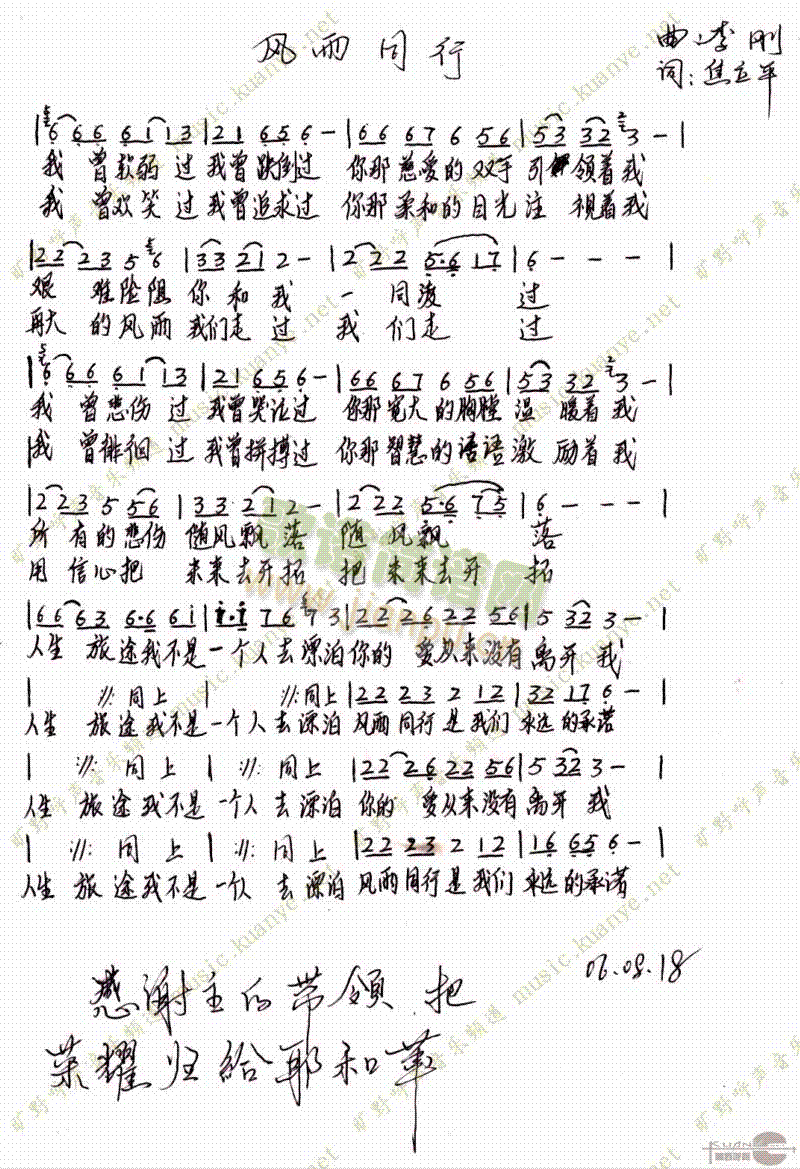 风雨同行
曲:李刚
词:焦立平
|6 6 6 6 1 1 3|2 1 6 5 6 -|6 6 6 7 6 5 6|5 3 3 2 3 -|
我 曾软弱 过我曾跌倒过 你那慈爱的双手引领着我
我 曾欢笑 过我曾追求过 你那柔和的目光注 视着我
|2 2 2 3 5 6|3 3 2 1 2 -|2 2 2 5·6 1 7|6 - - -|
艰 难险阻 你 和 我 一 同凌 过
再大 的风雨 我们走 过 我 们走 过
|6 6 6 6 1 1 3|2 1 6 5 6 -|6 6 6 7 6 5 6|5 3 3 2 3 -|
我 曾悲伤 过 我曾哭泣过 你那宽大的胸膛 温 暖着我
我 曾徘徊 过 我曾拼搏过 你那智慧的话语激 励着我
|2 2 3 5 5 6|3 3 2 1 2 -|2 2 2 5·6 7 5|6 - - -|
所 有的悲伤 随风飘 落 随 风飘 落
用 信心把 未来去开拓 把 未来去开 拓
|6 6 6 3 6·6 6 i|i·i 7 6 7 3|2 2 2 6 2 2 5 6|5 3 2 3 -|
人生 旅途我不是一个人去漂泊你的 爱从来没有离开 我
| :://: 同上 | :://: 同上|2 2 2 3 2 1 2|3 2 1 7 6 -|
人生 旅途我不是一个人去漂泊 风雨同行是我们 永远的承诺
| :://: 同上 | :://: 同上 |2 2 2 6 2 2 5 6|5 3 2 3 -|
人生 旅途我不是一个人去漂泊 你的 爱从来没有离开 我
| :://: 同上 | :://: 同上 |2 2 2 3 2 1 2|1 6 6 5 6 -|
人生 旅途我不是一个人 去漂泊 风雨同行是我们 永远的承诺
06.08.18
感谢主的带领 把
荣耀归给耶和华
旷野呼声音乐频道 music.kuanye.net
歌谱简谱网
www.jianpu.cn